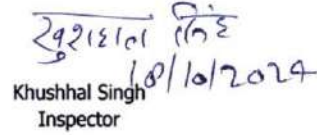 खुशहाल सिंह
18/10/2024
Khushhal Singh
Inspector